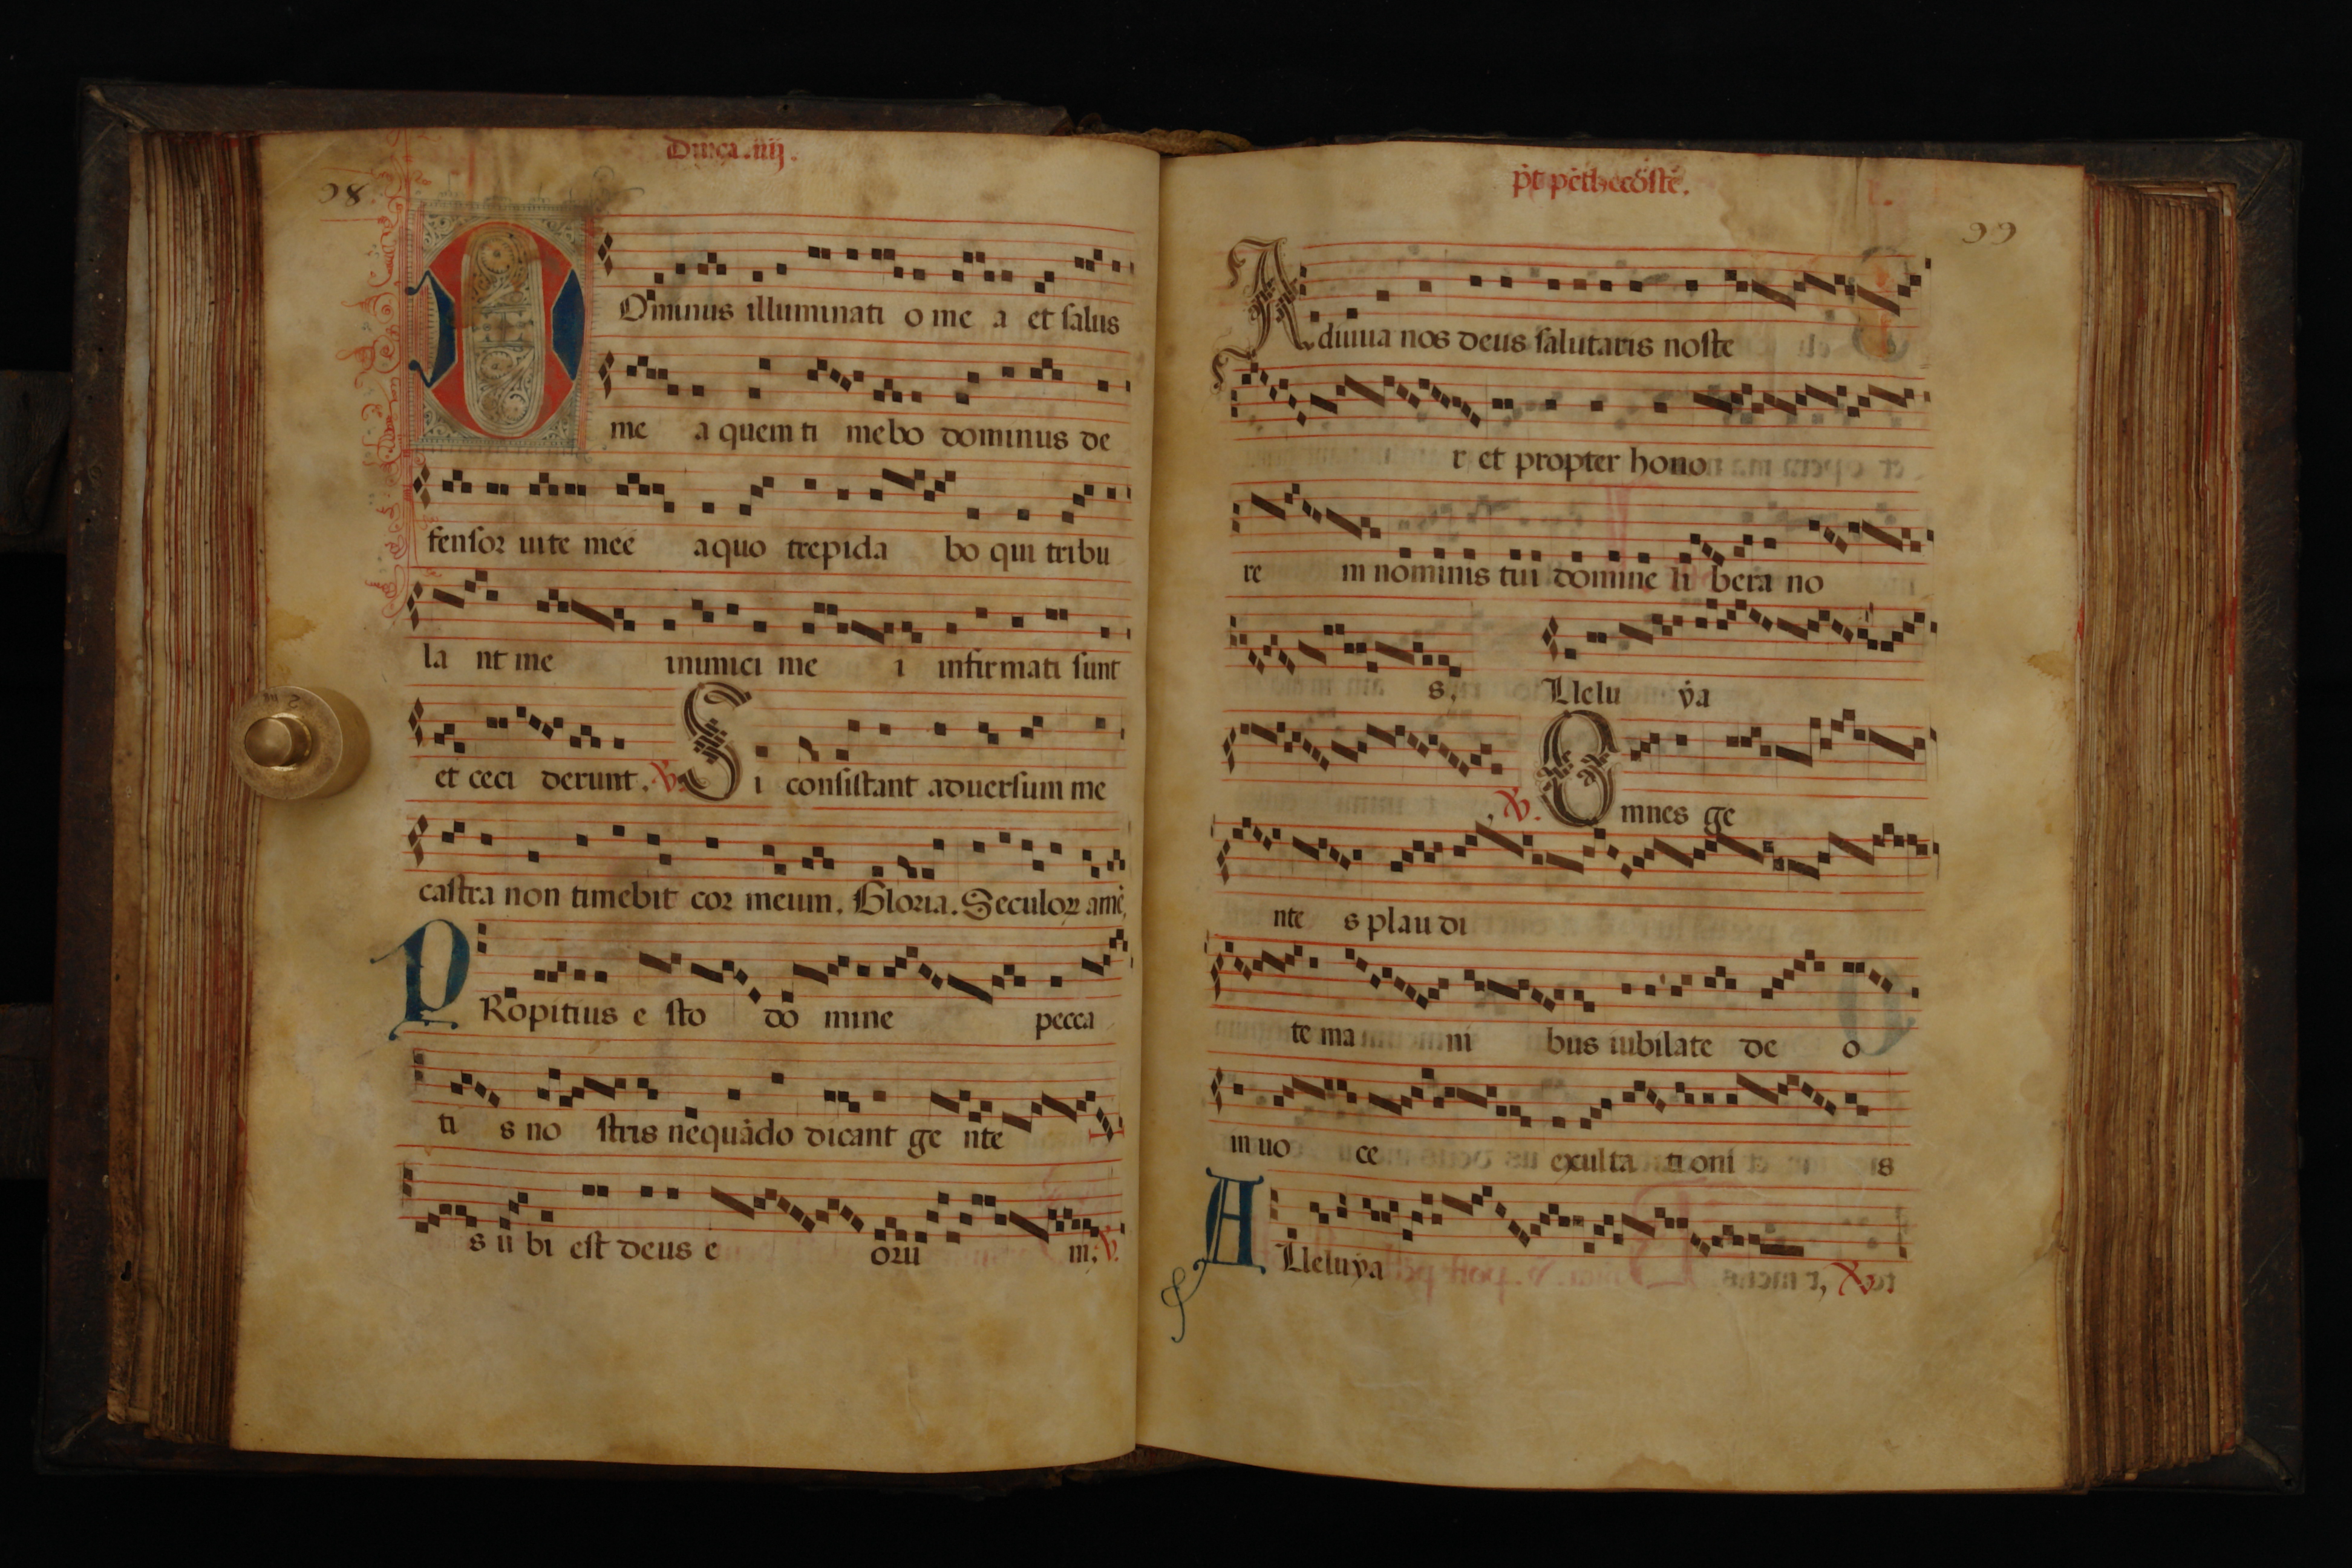 Dnica .iiij.
98
Dominus illuminati o me a et salus
me a quem ti mebo dominus de
fensor uite mee a quo trepida bo qui tribu
la nt me inimici me i infirmati sunt
et ceci derunt. V. Si consistant aduersum me
castra non timebit cor meum. Gloria. Seculoꝝ amē,
PRopitius e sto do mine pecca
ti s no stris nequādo dicant ge nte
s u bi est deus e oru m. V.
pt pēthecostē.
99
Adiuua nos deus salutaris noste
r et propter hono
re m nominis tui domine li bera no
s. Llelu ya
, V. Omnes ge
nte s plau di
te ma ni bus iubilate de o
in uo ce exulta ti oni s
ALleluya V.